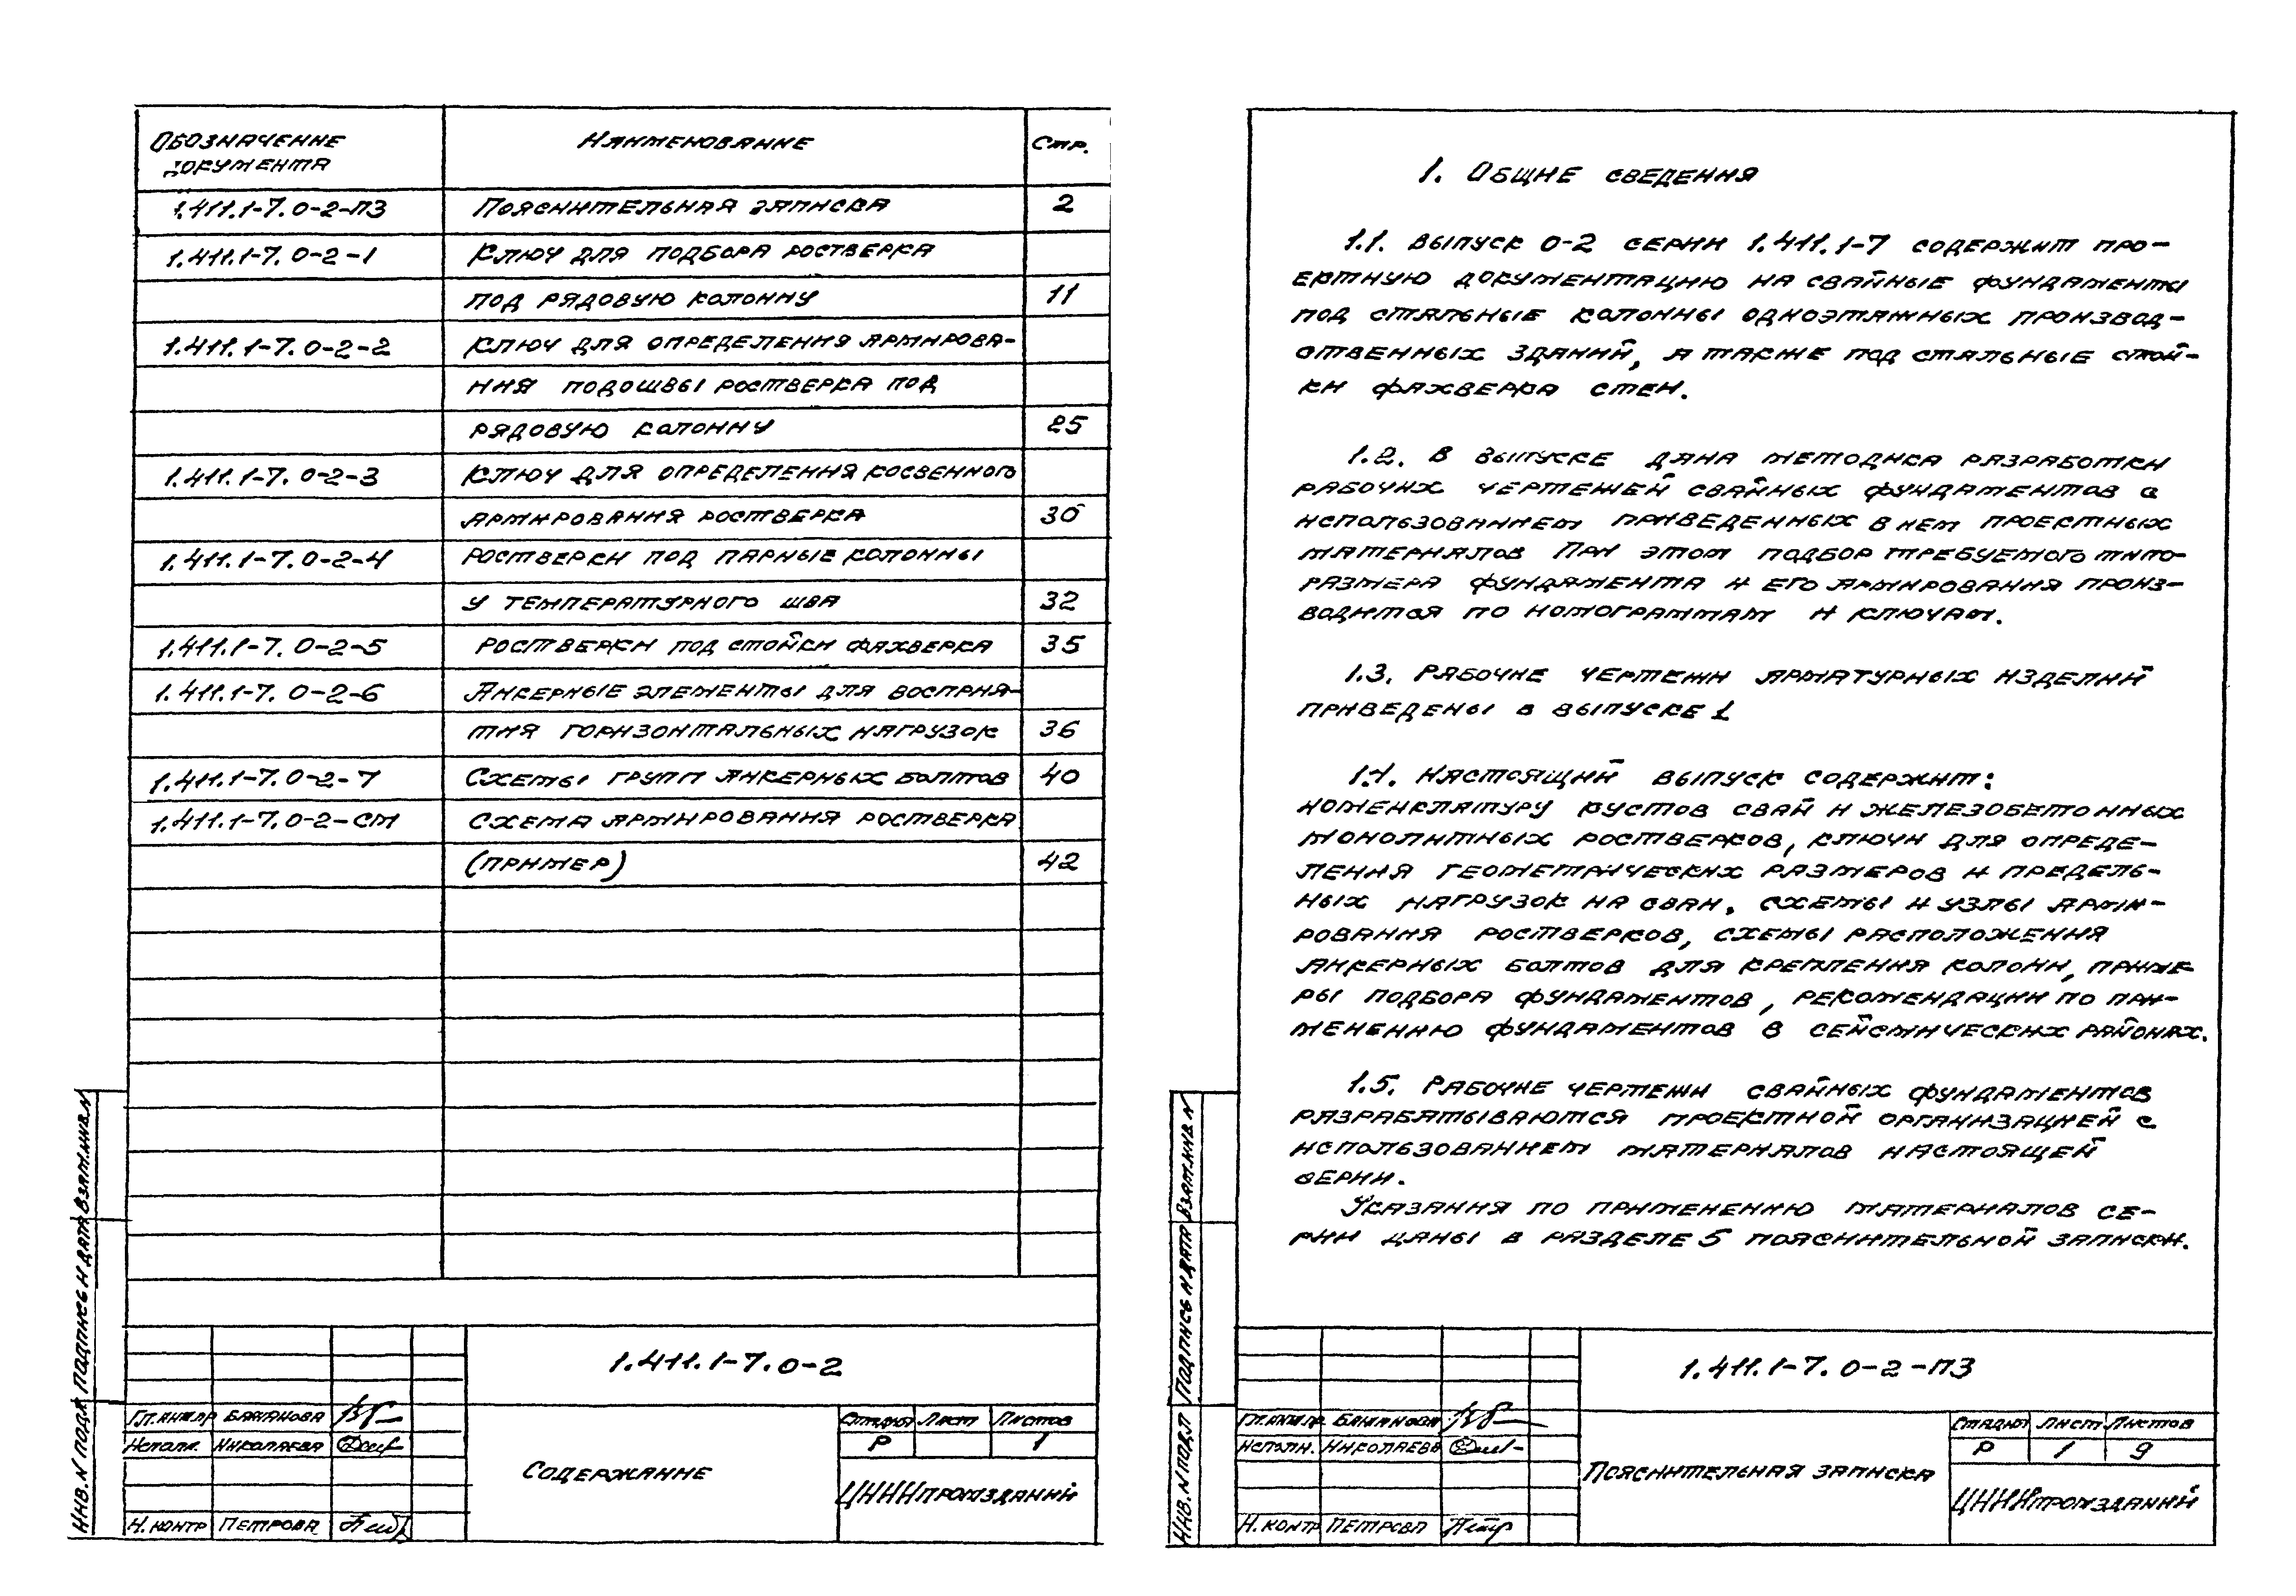 Обозначение документа Наименование Стр.
1.411.1-7.0-2-ПЗ Пояснительная записка 2
1.411.1-7.0-2-1 Ключ для подбора ростверка
под рядовую колонну 11
1.411.1-7.0-2-2 Ключ для определения армирова-
ния подошвы ростверка под
рядовую колонну 25
1.411.1-7.0-2-3 Ключ для определения косвенного
армирования ростверка 30
1.411.1-7.0-2-4 Ростверки под парные колонны
у температурного шва 32
1.411.1-7.0-2-5 Ростверки под стойки фахверка 35
1.411.1-7.0-2-6 Анкерные элементы для восприя-
тия горизонтальных нагрузок 36
1.411.1-7.0-2-7 Схемы групп анкерных болтов 40
1.411.1-7.0-2-СМ Схема армирования ростверка
(пример) 42
1.411.1-7.0-2
Гл.инж.пр Баканова
Исполн. Николаева
Н.контр Петрова
Содержание
Стадия Лист Листов
Р 1
ЦНИИпромзданий
Инв.N подл Подпись и дата Взам.инв.N
1. Общие сведения
1.1. Выпуск 0-2 серии 1.411.1-7 содержит про-
ектную документацию на свайные фундаменты
под стальные колонны одноэтажных производ-
ственных зданий, а также под стальные стой-
ки фахверка стен.
1.2. В выпуске дана методика разработки
рабочих чертежей свайных фундаментов с
использованием приведенных в нем проектных
материалов При этом подбор требуемого типо-
размера фундамента и его армирования произ-
водится по номограммам и ключам.
1.3. Рабочие чертежи арматурных изделий
приведены в выпуске 1
1.4. Настоящий выпуск содержит:
номенклатуру кустов свай и железобетонных
монолитных ростверков, ключи для опреде-
ления геометрических размеров и предель-
ных нагрузок на сваи, схемы и узлы арми-
рования ростверков, схемы расположения
анкерных болтов для крепления колонн, приме-
ры подбора фундаментов, рекомендации по при-
менению фундаментов в сейсмических районах.
1.5. Рабочие чертежи свайных фундаментов
разрабатываются проектной организацией с
использованием материалов настоящей
серии.
Указания по применению материалов се-
рии даны в разделе 5 пояснительной записки.
1.411.1-7.0-2-ПЗ
Гл.инж.пр. Баканова
Исполн. Николаева
Н.контр Петрова
Пояснительная записка
Стадия Лист Листов
Р 1 9
ЦНИИпромзданий
Инв.N подл Подпись и дата Взам.инв.N